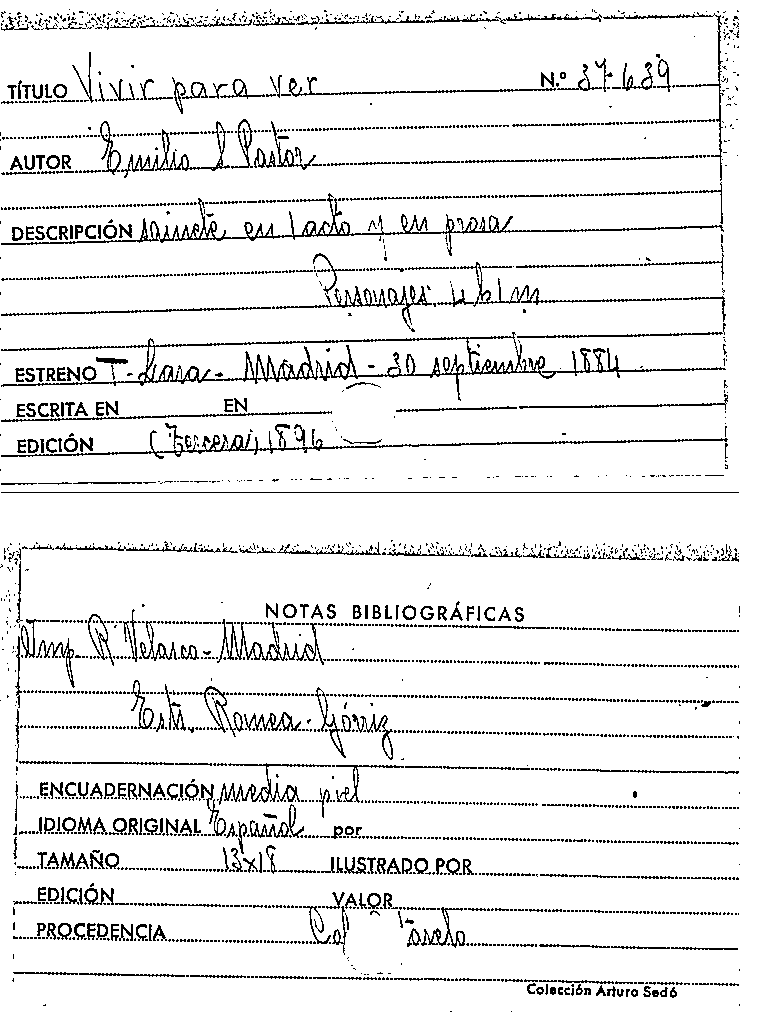 TÍTULO Vivir para ver N.º 37.639
AUTOR Emilio S Pastor
DESCRIPCIÓN sainete en 1 acto y en prosa
Personajes: 4 h 1 m
ESTRENO T- Lara - Madrid - 30 septiembre 1884
ESCRITA EN EN
EDICIÓN (Tercera), 1896
NOTAS BIBLIOGRÁFICAS
Imp. R. Velasco - Madrid
Estr. Romea - Górriz
ENCUADERNACIÓN media piel
IDIOMA ORIGINAL Español por
TAMAÑO 13x18 ILUSTRADO POR
EDICIÓN VALOR
PROCEDENCIA Col
Colección Arturo Sedó